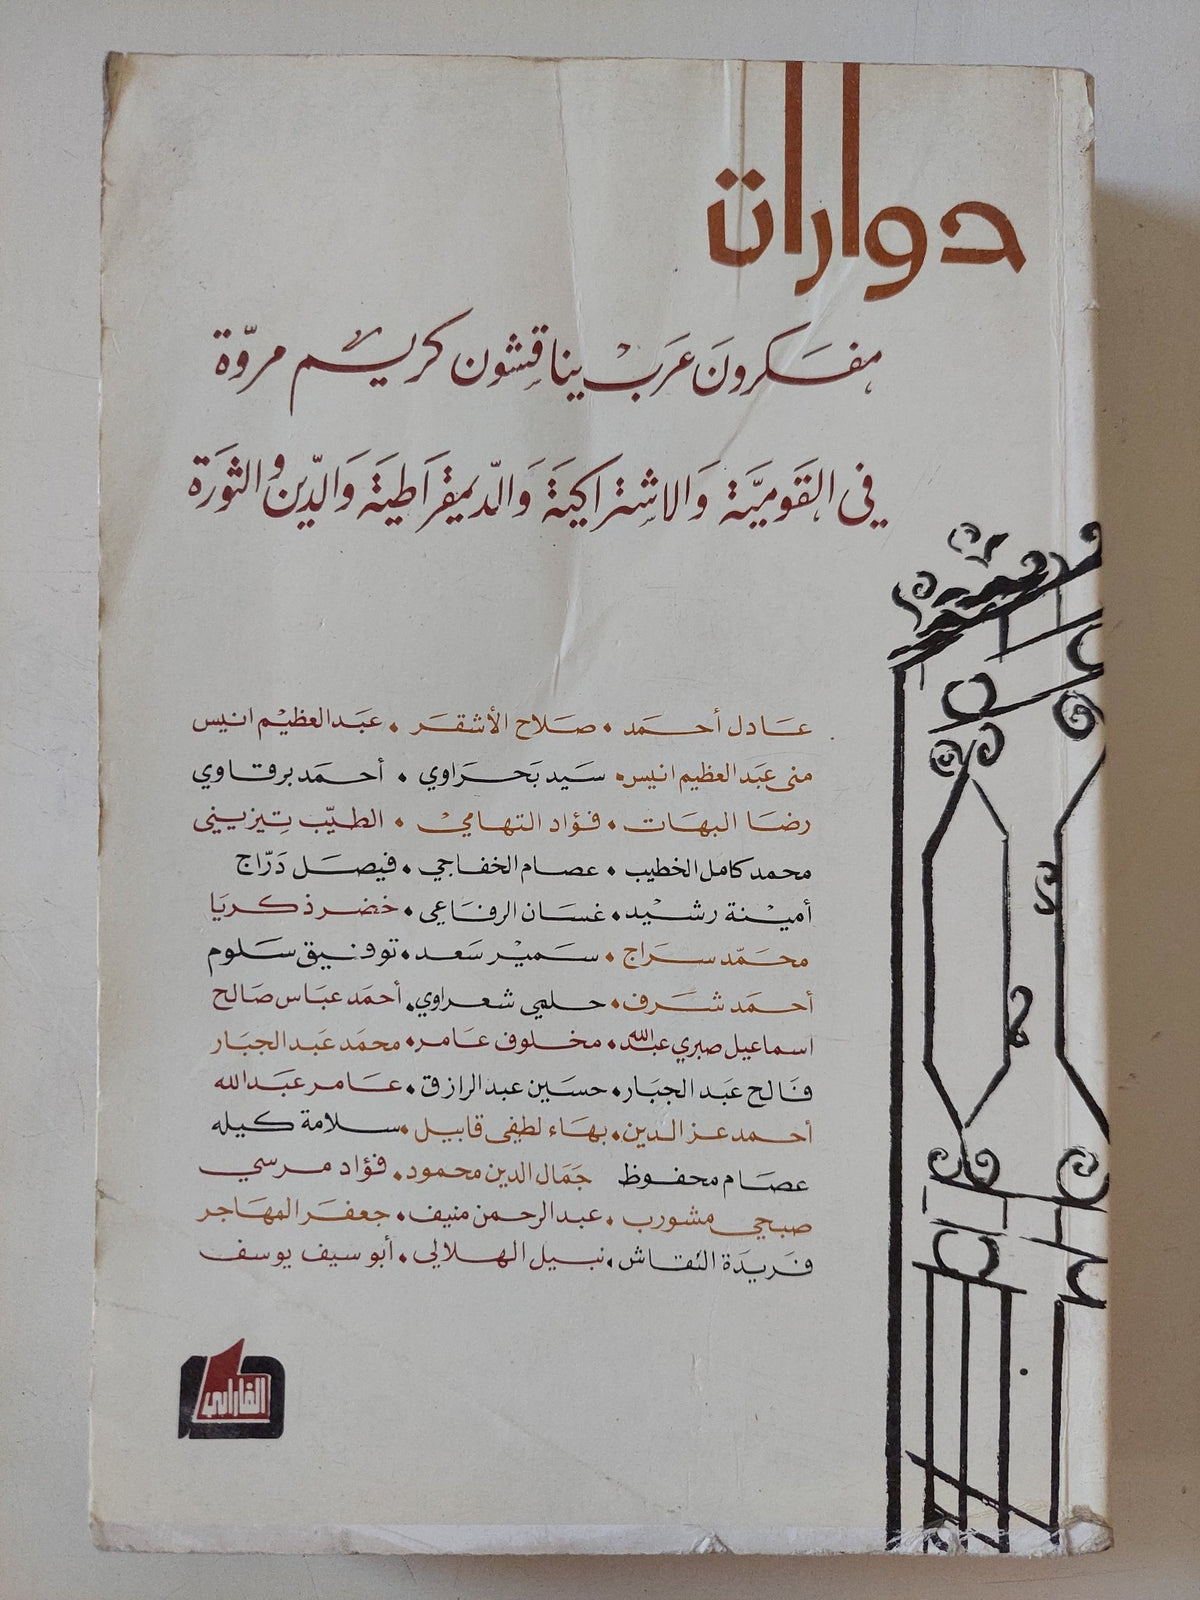 حوارات
مفكرون عرب يناقشون كريم مروّة
في القوميّة والاشتراكية والدّيمقراطية والدّين والثورة
عادل أحمد • صلاح الأشقر • عبد العظيم انيس
منى عبد العظيم انيس • سيد بحراوي • أحمد برقاوي
رضا البهات • فؤاد التهامي • الطيّب تيزيني
محمد كامل الخطيب • عصام الخفاجي • فيصل درّاج
أمينة رشيد • غسان الرفاعي • خضر زكريا
محمّد سراج • سمير سعد • توفيق سلوم
أحمد شرف • حلمي شعراوي • أحمد عباس صالح
اسماعيل صبري عبدالله • مخلوف عامر • محمد عبد الجبار
فالح عبد الجبار • حسين عبد الرازق • عامر عبدالله
أحمد عز الدين • بهاء لطفي قابيل • سلامة كيله
عصام محفوظ جمال الدين محمود • فؤاد مرسي
صبحي مشورب • عبد الرحمن منيف • جعفر المهاجر
فريدة النقاش • نبيل الهلالي • أبو سيف يوسف
الفارابي